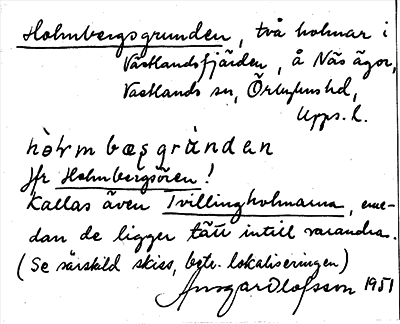 Holmbergsgrunden, två holmar i
Västlandsfjärden, å Näs ägor,
Västlands sn, Örbyhus hd,
Upps. l.
Jfr Holmbergsören!
Kallas även Tvillingholmarna, eme-
dan de ligger tätt intill varandra.
(Se särskild skiss, betr. lokaliseringen)
Ansgar Olofsson 1951